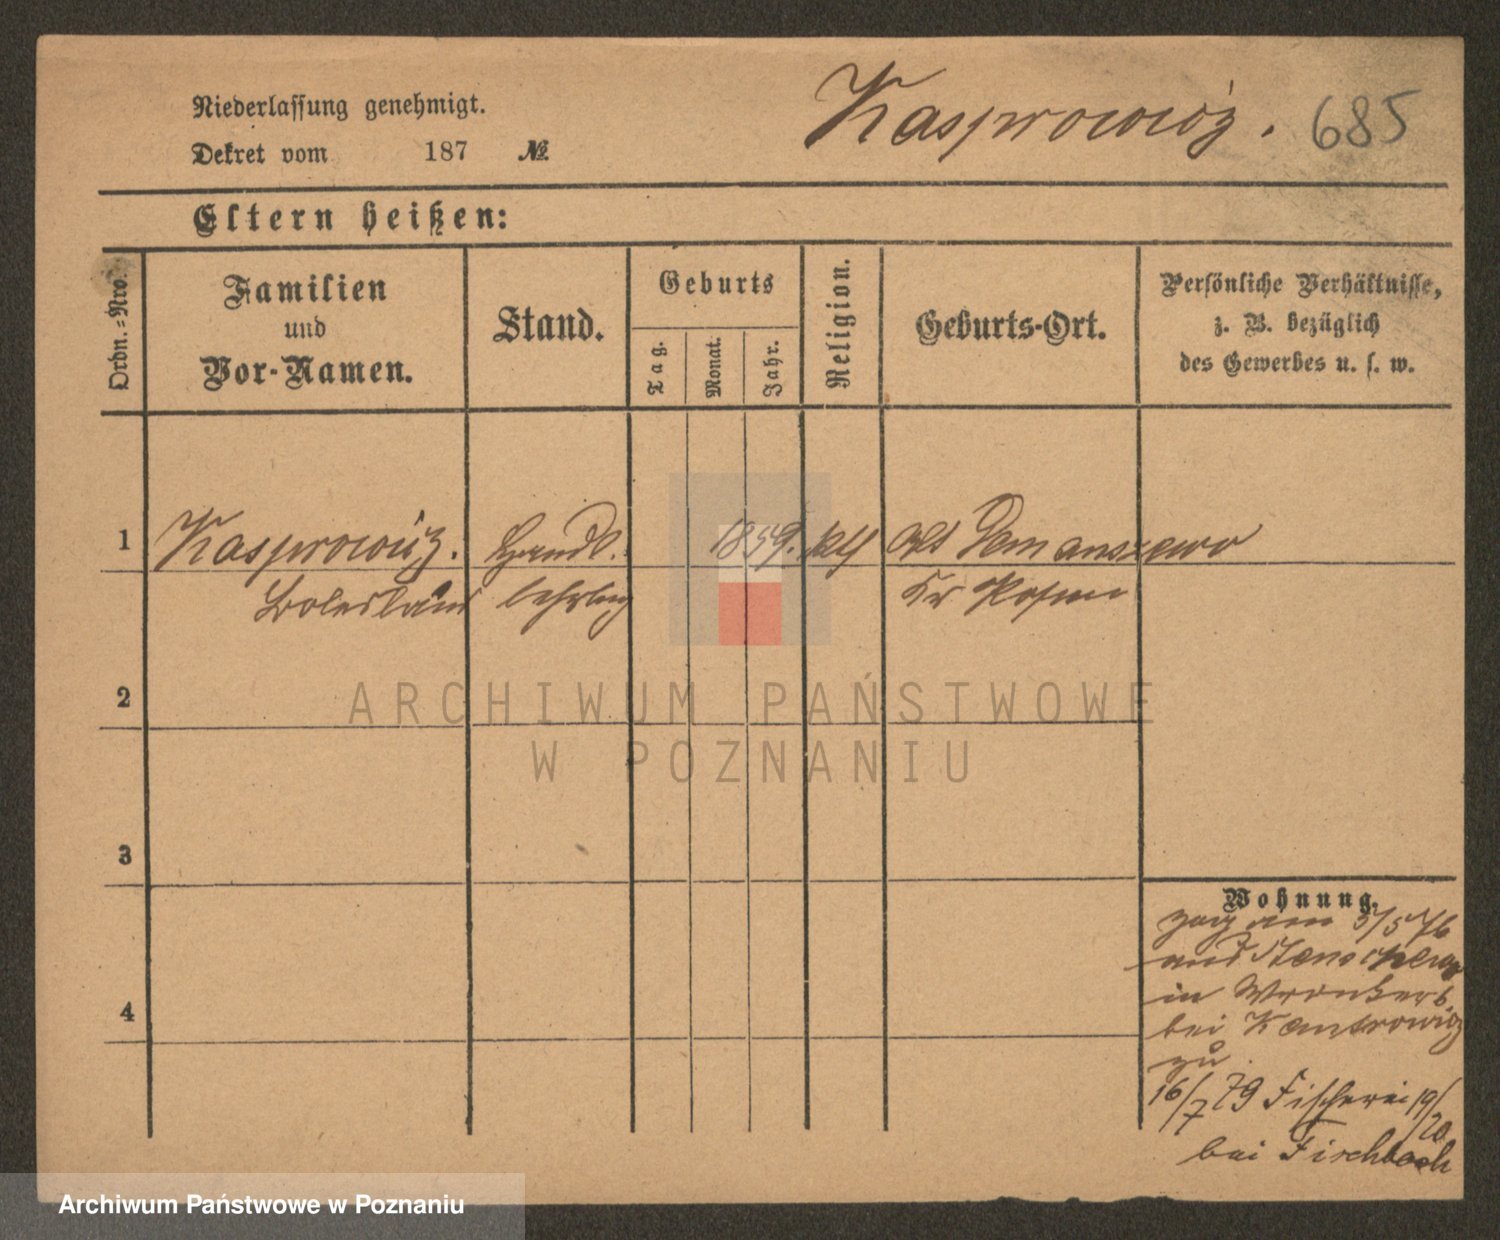 Niederlassung genehmigt.
Dekret vom 187 №
Kasprowicz. 685
Eltern heißen:
Ordn.=Nro.
Familien
und
Vor-Namen.
Stand.
Geburts
Tag.
Monat.
Jahr.
Religion.
Geburts-Ort.
Persönliche Verhältnisse,
z. B. bezüglich
des Gewerbes u. s. w.
1 Kasprowicz. Handl. 1859. kth Alt Demanszewo
Boleslaus lehrlng Kr Posen
2
3
4
Wohnung.
zog am 5/5 76
aus
in Wronkerb.
bei Kantrowicz
zu.
16/7 79 Fischerei 19/20
bei Fischbach
ARCHIWUM PAŃSTWOWE
W POZNANIU
Archiwum Państwowe w Poznaniu